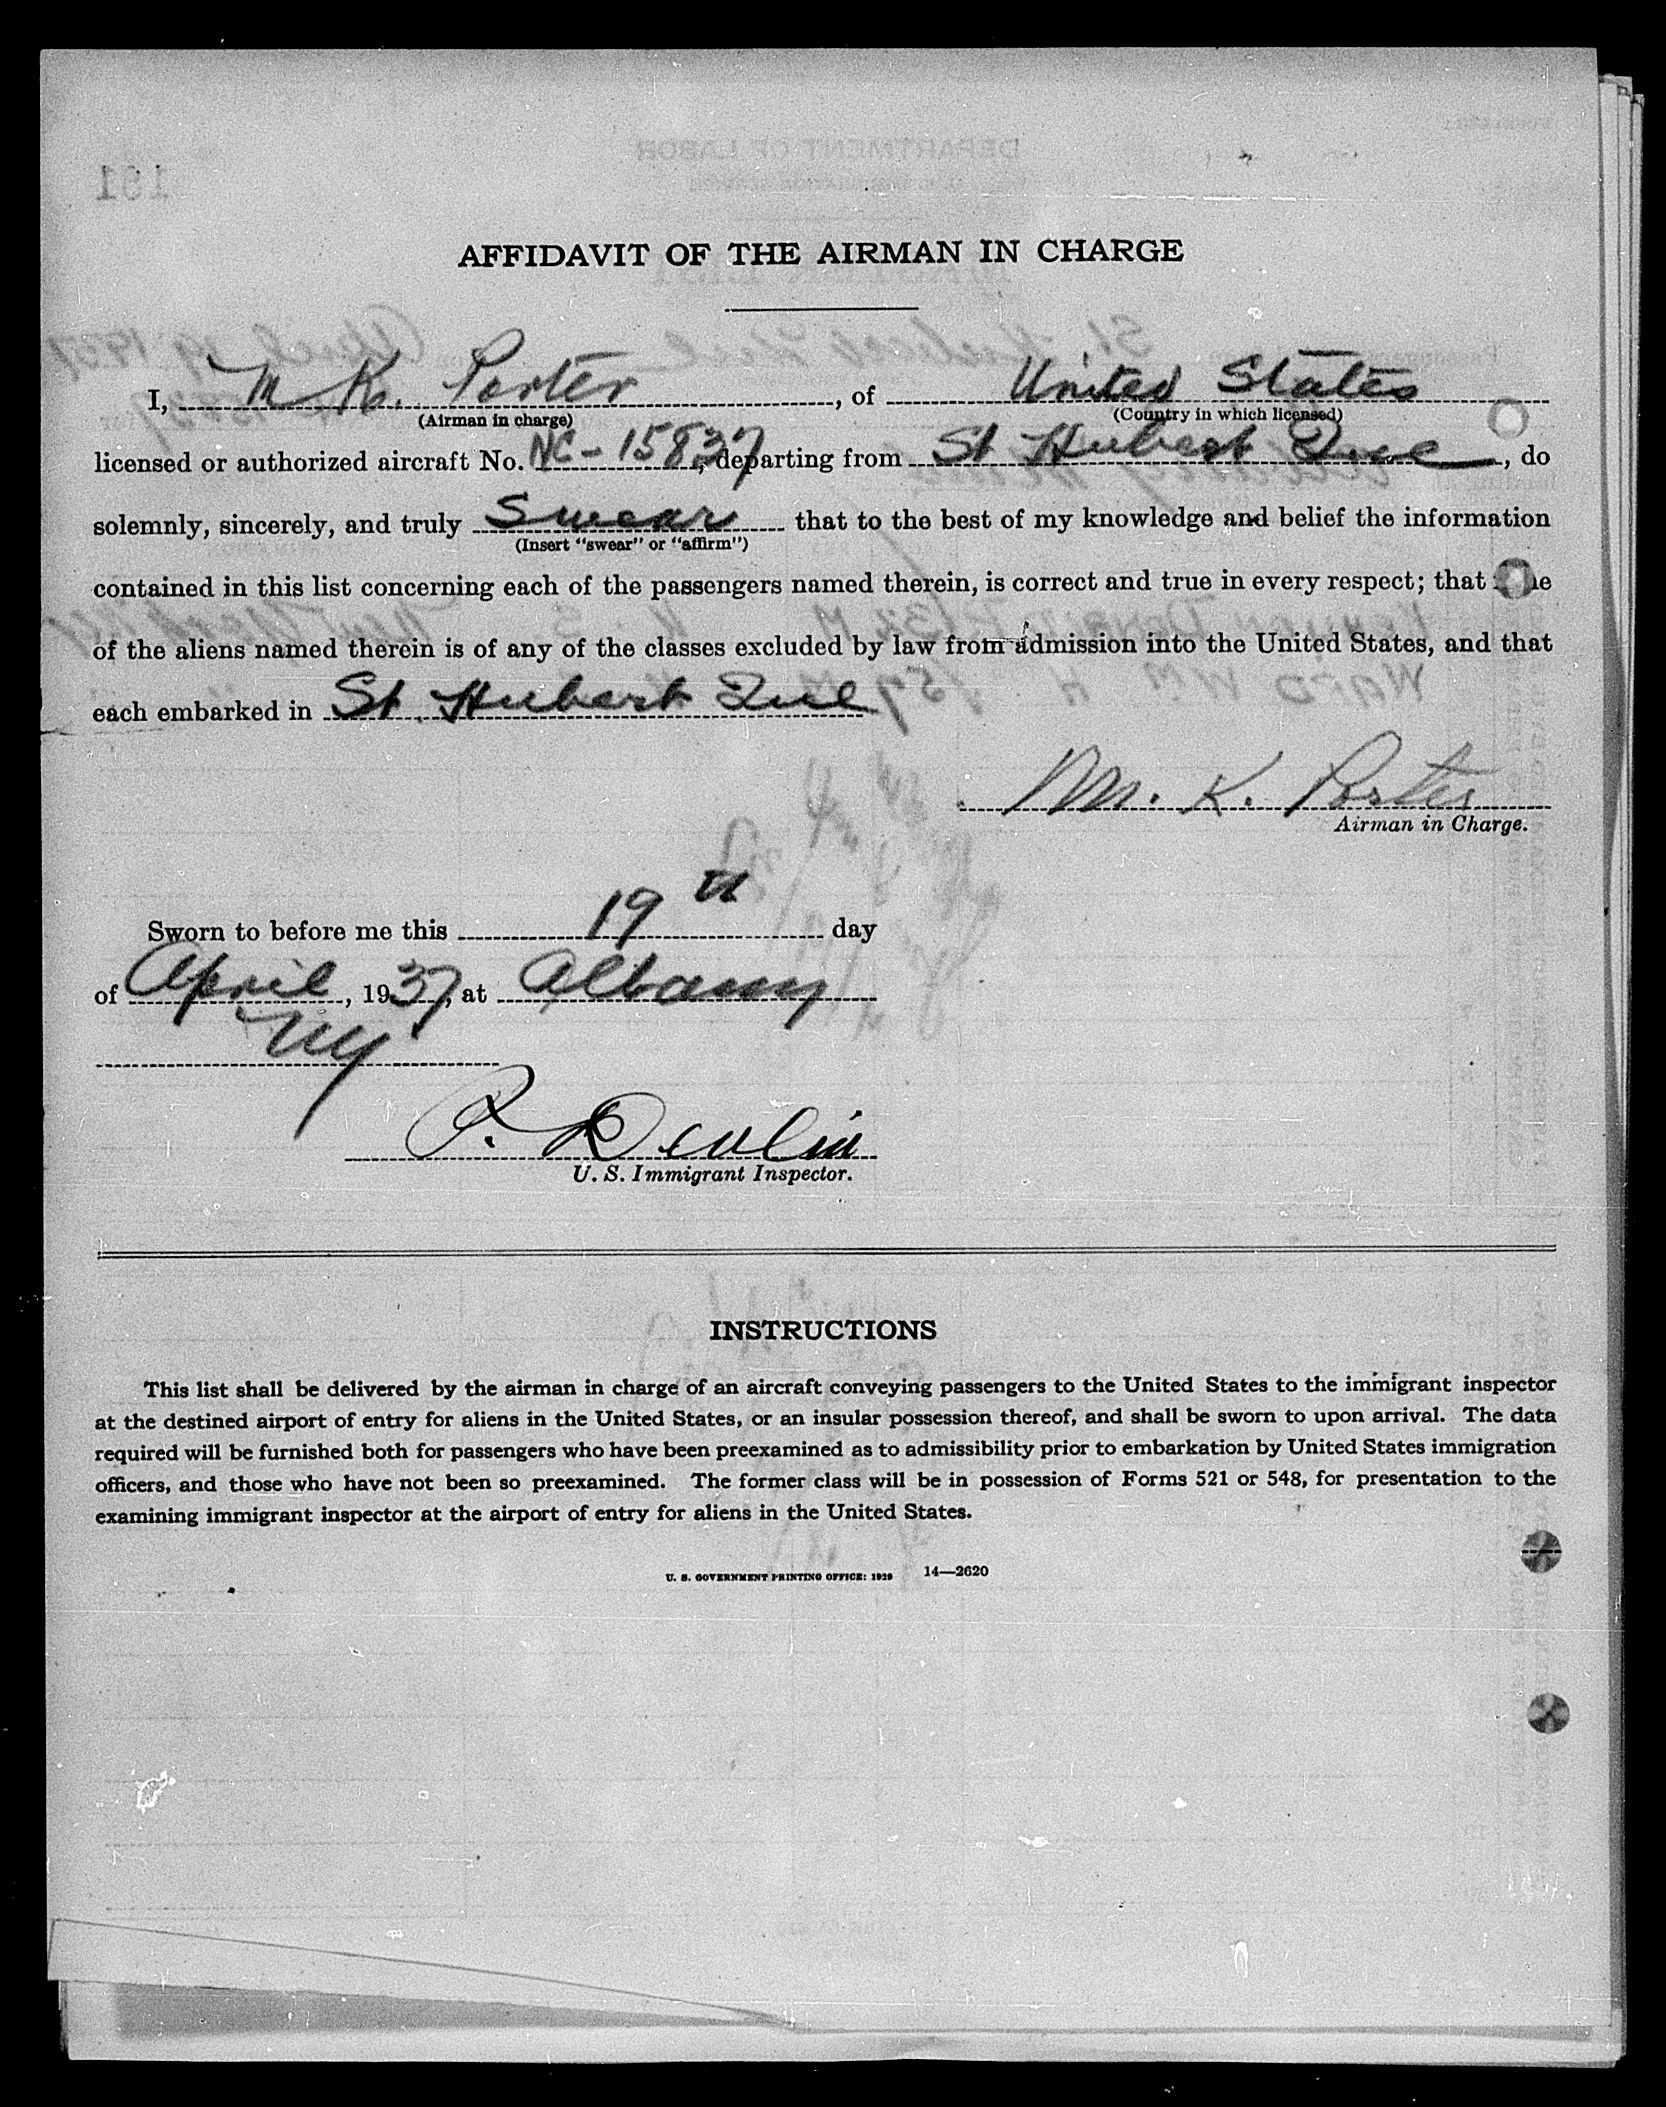 AFFIDAVIT OF THE AIRMAN IN CHARGE
I, M K. Porter, of United States
(Airman in charge) (Country in which licensed)
licensed or authorized aircraft No. NC-15837, departing from St Hubert Que, do
solemnly, sincerely, and truly Swear that to the best of my knowledge and belief the information
(Insert "swear" or "affirm")
contained in this list concerning each of the passengers named therein, is correct and true in every respect; that
of the aliens named therein is of any of the classes excluded by law from admission into the United States, and that
each embarked in St. Hubert Que
M. K. Porter
Airman in Charge.
Sworn to before me this 19th day
of April, 1937, at Albany
NY
P. Devlin
U. S. Immigrant Inspector.
INSTRUCTIONS
This list shall be delivered by the airman in charge of an aircraft conveying passengers to the United States to the immigrant inspector
at the destined airport of entry for aliens in the United States, or an insular possession thereof, and shall be sworn to upon arrival. The data
required will be furnished both for passengers who have been preexamined as to admissibility prior to embarkation by United States immigration
officers, and those who have not been so preexamined. The former class will be in possession of Forms 521 or 548, for presentation to the
examining immigrant inspector at the airport of entry for aliens in the United States.
U. S. GOVERNMENT PRINTING OFFICE: 1929 14—2620